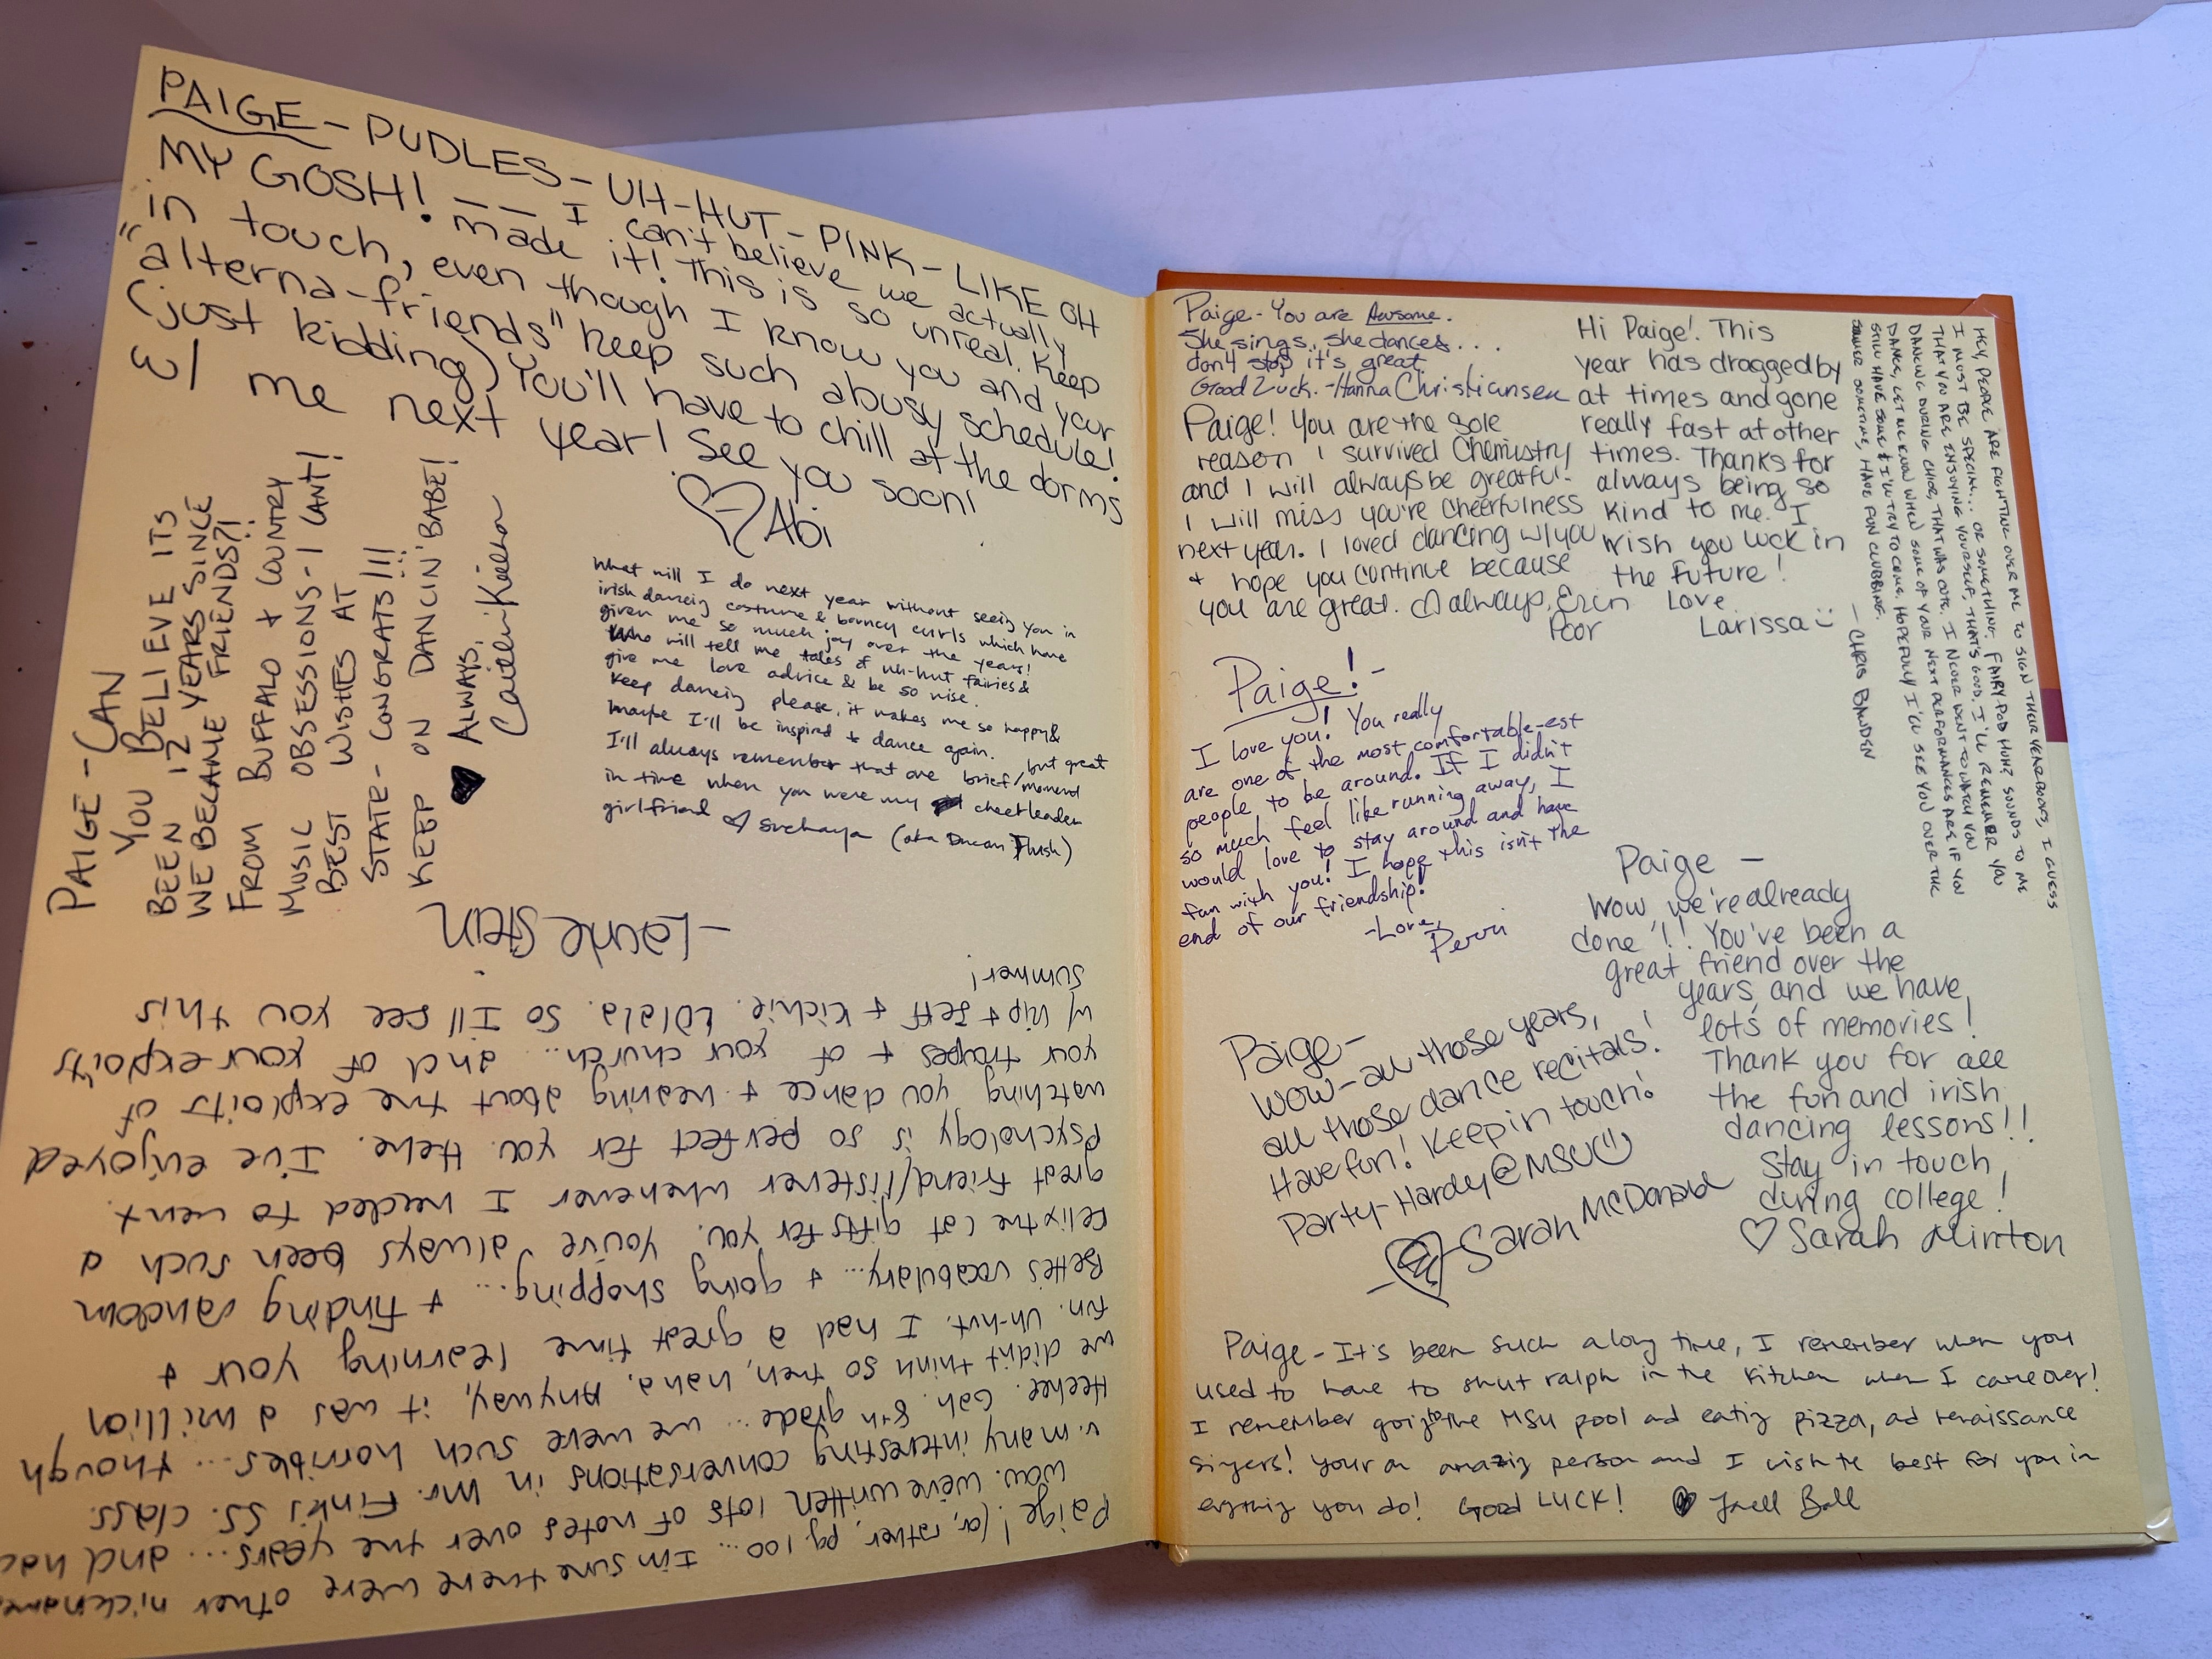 PAIGE - PUDLES - UH-HUT - PINK - LIKE OH
MY GOSH! — — I can't believe we actually
made it! This is so unreal. Keep
in touch, even though I know you and your
"alterna-friends" keep such abusy schedule!
(just kidding) You'll have to chill at the dorms
w/ me next year! See you soon!
♡ Abi
What will I do next year without seeing you in
irish dancing costume & bouncy curls which have
given me so much joy over the years!
Who will tell me tales of uh-hut fairies &
give me love advice & be so wise.
Keep dancing please, it makes me so happy &
maybe I'll be inspired to dance again.
I'll always remember that one brief/but great moment
in time when you were my cheerleader
girlfriend (aka Duncan
PAIGE - CAN
YOU BELIEVE ITS
BEEN 12 YEARS SINCE
WE BECAME FRIENDS?!
FROM BUFFALO + COUNTRY
MUSIC OBSESSIONS - I CANT!
BEST WISHES AT
STATE - CONGRATS!!!
KEEP ON DANCIN' BABE!
♥ ALWAYS,
Caitlin
Paige! (or, rather, pg. 100... I'm sure there were other nicknames
wow. we've written lots of notes over the years... and had
v. many interesting conversations in Mr. Fink's S.S. class.
Heehee. Gah. 8th grade... we were such horribles... though
we didn't think so then, haha. Anyway, it was a million
fun. Uh-hut. I had a great time learning your +
Bette's vocabulary... + going shopping... + finding random
Felix the Cat gifts for you. You've always been such a
great friend/listener whenever I needed to vent.
Psychology is so perfect for you. Hehe. I've enjoyed
watching you dance + hearing about the exploits of
your troupes + of your church... and of your exploits
w/ Nip + Jeff + Richie. Lalala. So I'll see you this
summer!
- Laurie Stein
Paige - You are Awsome.
She sings, she dances...
don't stop it's great.
Good Luck. - Hanna Christiansen
Paige! You are the sole
reason I survived Chemistry
and I will always be greatful.
I will miss you're cheerfulness
next year. I loved dancing w/ you
+ hope you continue because
you are great. ♡ always, Erin
Poor
Hi Paige! This
year has dragged by
at times and gone
really fast at other
times. Thanks for
always being so
kind to me. I
wish you luck in
the future!
Love
Larissa
HEY, PEOPLE ARE FIGHTING OVER ME TO SIGN THEIR YEARBOOKS, I GUESS
I MUST BE SPECIAL... OR SOMETHING. FAIRY POD HUH? SOUNDS TO ME
THAT YOU ARE ENJOYING YOURSELF, THAT'S GOOD. I'LL REMEMBER YOU
DANCING DURING CHOIR, THAT WAS CUTE. I NEVER WENT TO WATCH YOU
DANCE, LET ME KNOW WHEN SOME OF YOUR NEXT PERFORMANCES ARE IF YOU
STILL HAVE SOME & I'LL TRY TO COME. HOPEFULLY I'LL SEE YOU OVER THE
SUMMER SOMETIME, HAVE FUN CLUBBING.
— CHRIS
Paige! -
I love you! You really
are one of the most comfortable-est
people to be around. If I didn't
so much feel like running away, I
would love to stay around and have
fun with you! I hope this isn't the
end of our friendship!
- Love,
Perri
Paige —
Wow we're already
done!! You've been a
great friend over the
years, and we have
lots of memories!
Thank you for all
the fun and irish
dancing lessons!!
Stay in touch
during college!
♡ Sarah Minton
Paige -
Wow - all those years,
all those dance recitals!
Have fun! Keep in touch!
Party-Hardy @ MSU
Sarah McDonald
Paige - It's been such along time, I remember when you
used to have to shut ralph in the kitchen when I came over!
I remember going to the MSU pool and eating pizza, ad renaissance
singers! Your an amazing person and I wish the best for you in
you do! Good LUCK! ♥ Ball